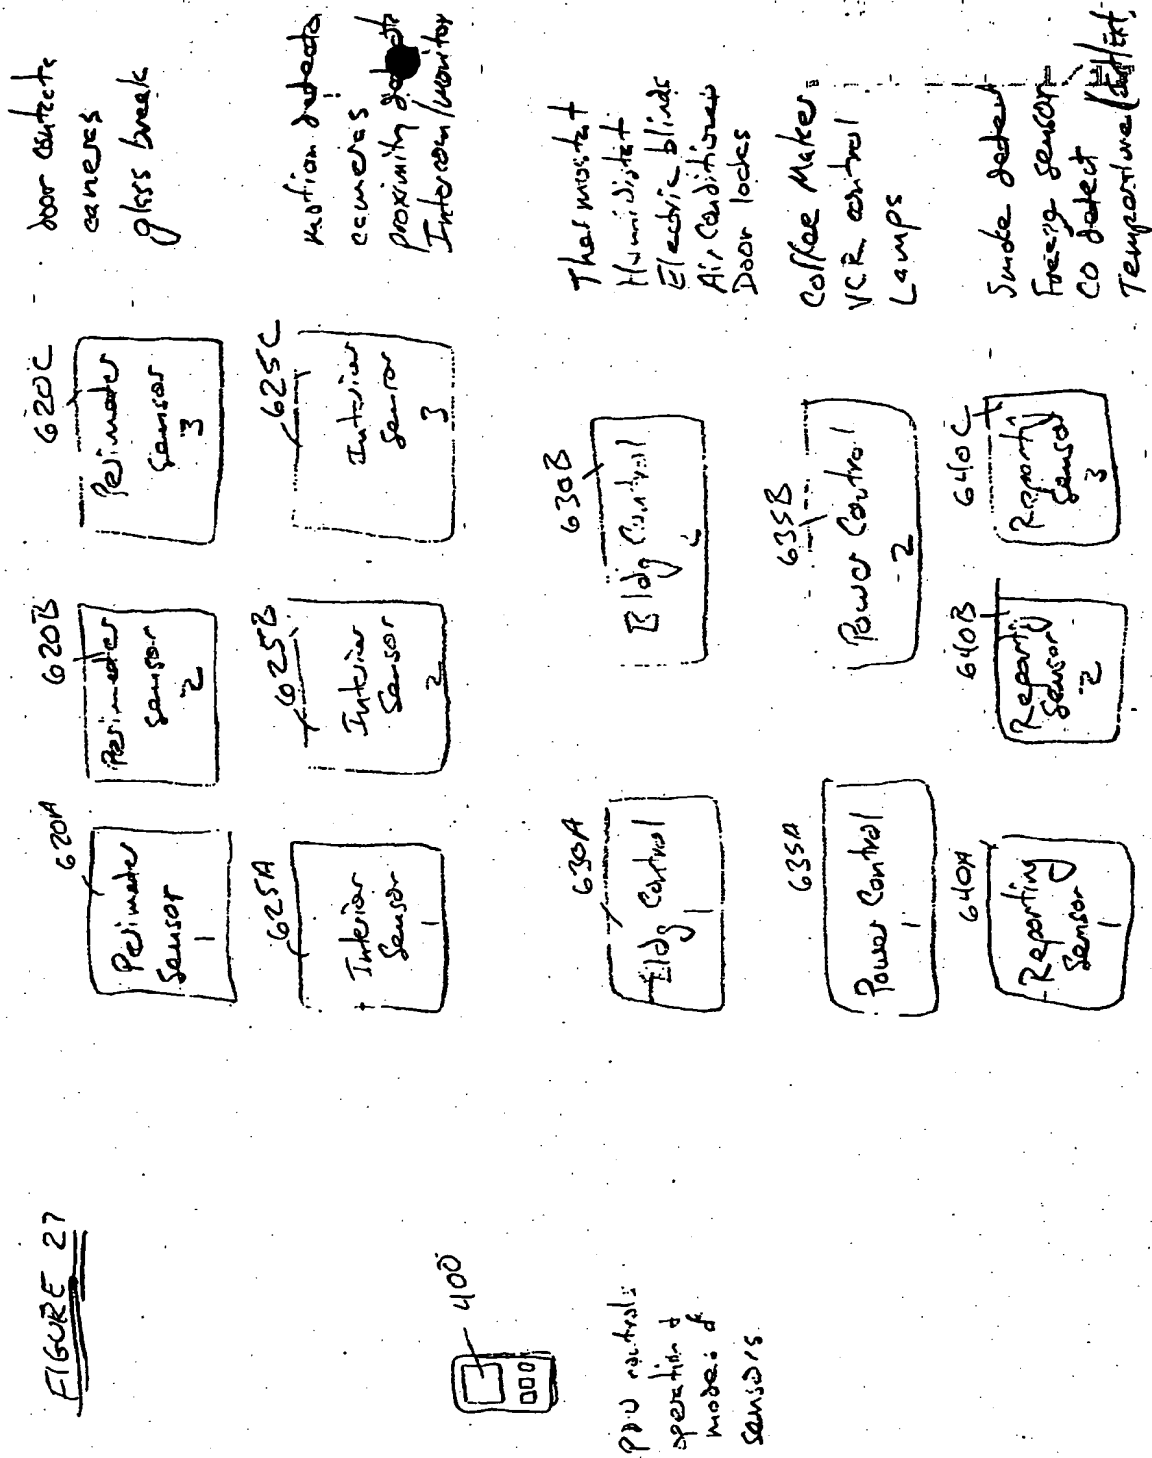 FIGURE 27
400
operation &
modes of
sensors
620A
Perimeter
Sensor
1
620B
Perimeter
Sensor
2
620C
Perimeter
Sensor
3
door contacts
cameras
glass break
625A
Interior
Sensor
1
625B
Interior
Sensor
2
625C
Interior
Sensor
3
motion detects
cameras
proximity
Intercom/monitor
630A
Bldg Control
1
630B
Bldg Control
2
Thermostat
Humidistat
Electric blinds
Air Conditioner
Door locks
635A
Power Control
1
635B
Power Control
2
Coffee Maker
VCR control
Lamps
640A
Reporting
Sensor
1
640B
Reporting
Sensor
2
640C
Reporting
Sensor
3
Smoke detect
Freeze sensor
CO detect
Temperature